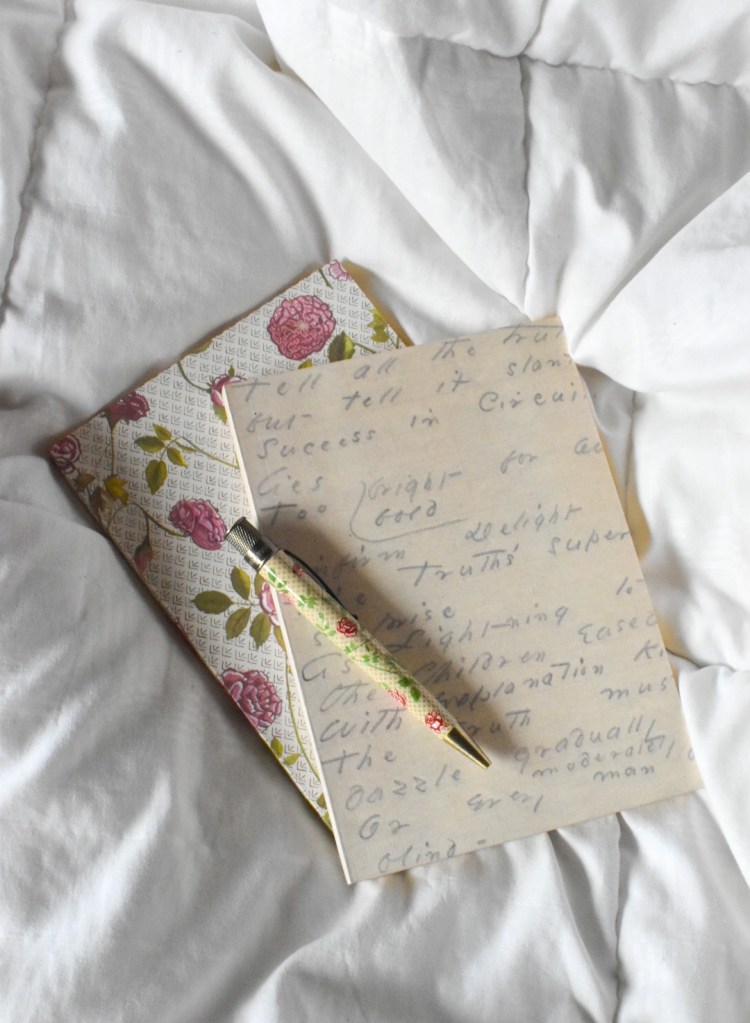 Tell all the tru
but tell it slan
Success in Circui
lies
Too (bright for ou
bold
infirm Delight
Truths' super
prise
Lightning to
Children Eased
the explanation
With
Truth mus
The
dazzle gradually
moderately
Or every man
blind -